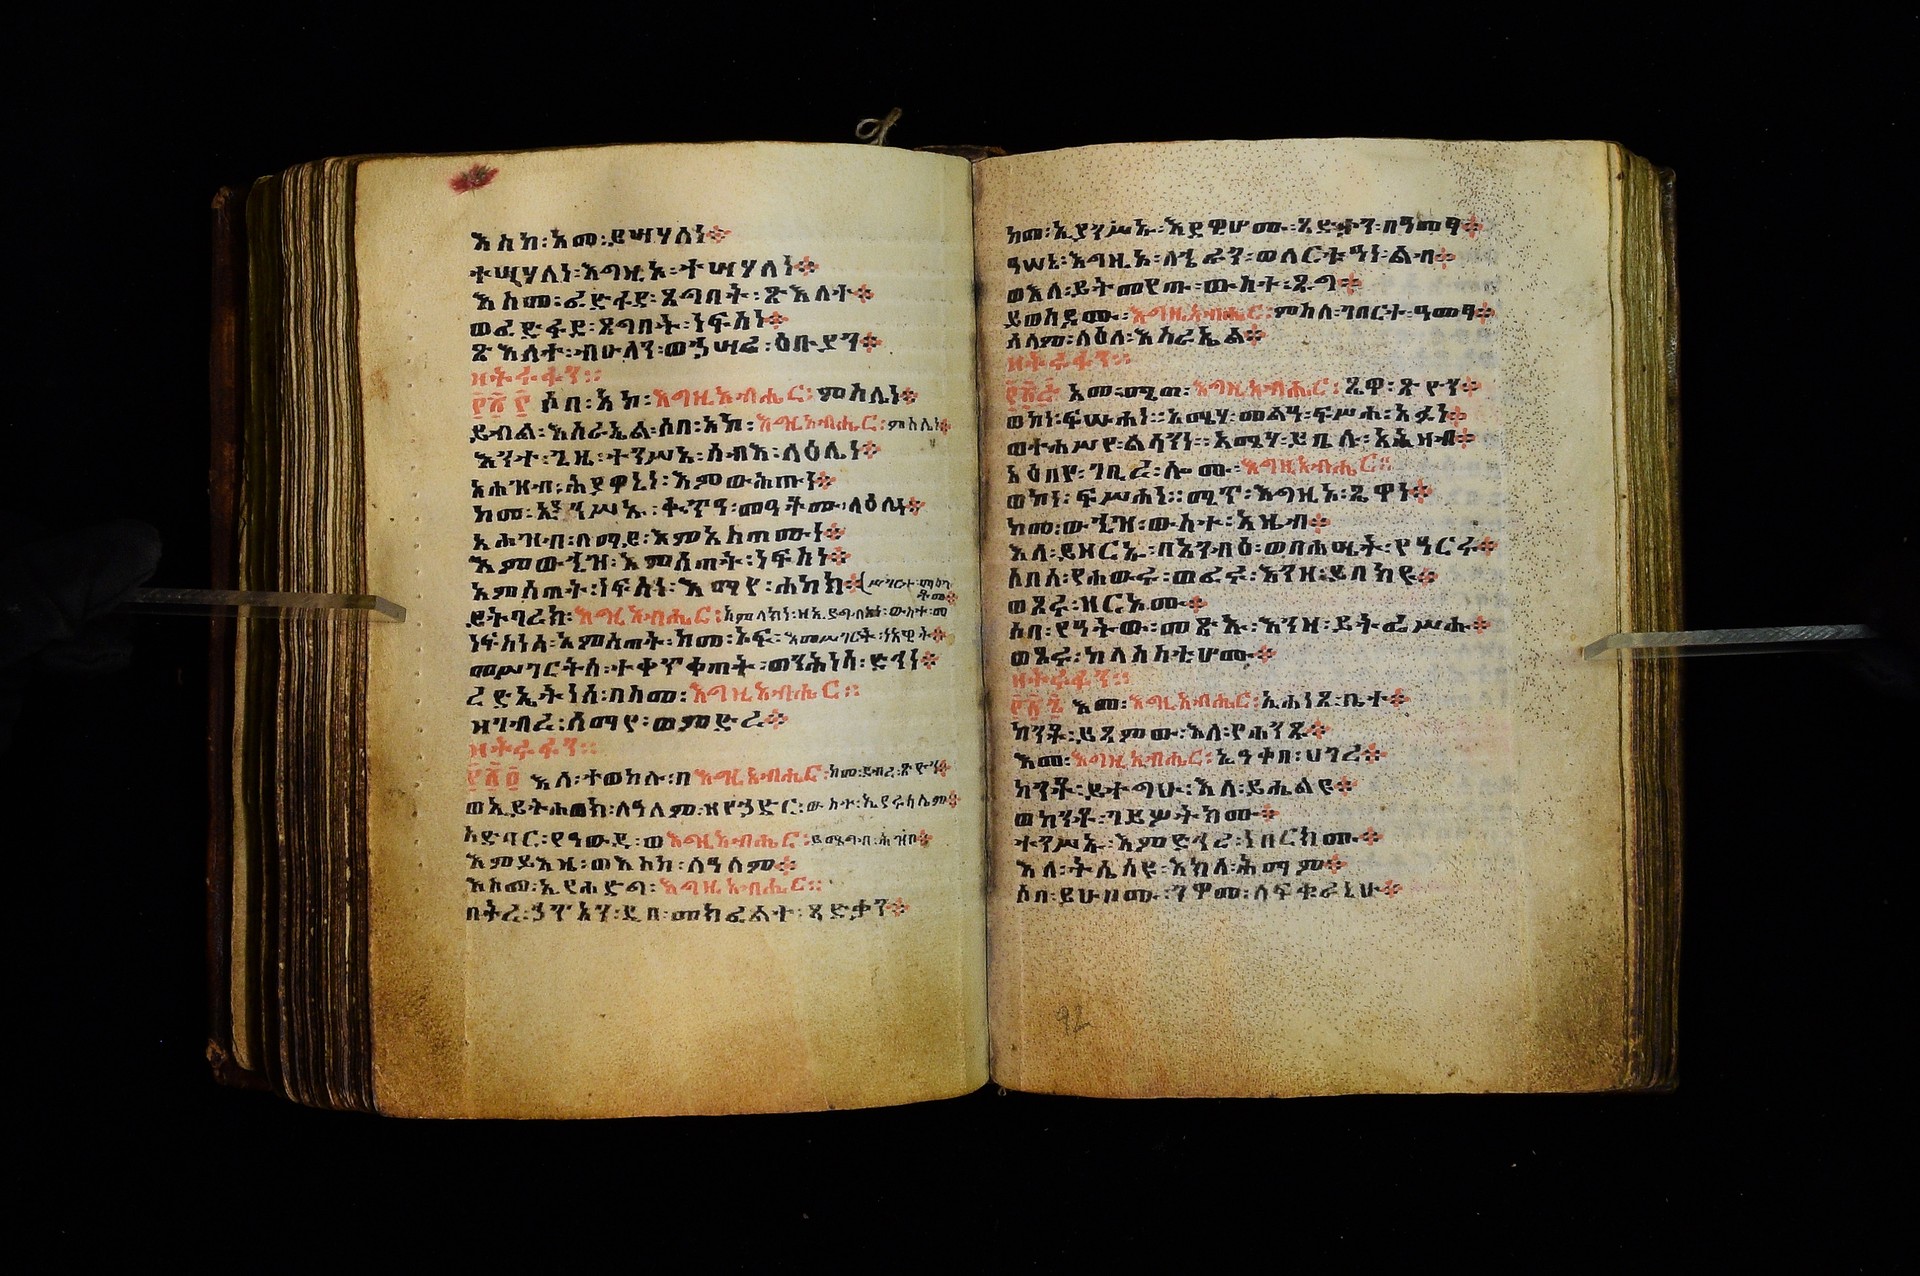 እስከ፡አመ፡ይሣሃለነ
ተሣሃለነ፡እግዚኦ፡ተሣሃለነ
እስመ፡ፈድፋደ፡ጸግበት፡ጽእለተ
ወፈድፋደ፡ጸግበት፡ነፍስነ
ጽእለተ፡ብዑላን፡ወኃሣሬ፡ዕቡያን
ዘትሩፋን።
፻፳፫ ሶበ፡አኮ፡እግዚአብሔር፡ምስሌነ
ይብል፡እስራኤል፡ሶበ፡አኮ፡እግዚአብሔር፡ምስሌነ
እንተ፡ጊዜ፡ተንሥኡ፡ሰብእ፡ላዕሌነ
አሐዝብ፡ሕያዋኒነ፡እምውሕጡነ
ከመ፡ አንሥኡ፡ቍጥዓ፡መዓቶሙ፡ላዕሌነ
አሐዝብ፡በማይ፡እምአስጠሙነ
እምውኂዝ፡አምሰጠት፡ነፍስነ
አምሰጠት፡ነፍስነ፡እማየ፡ሐከክ
ይትባረክ፡እግዚአብሔር፡
ነፍስነሰ፡አምሰጠት፡ከመ፡ዖፍ፡እመሥገርት፡ነዓዊት
መሥገርትሰ፡ተቀጥቀጠት፡ወንሕነሰ፡ድኅነ
ረድኤትነሰ፡በስመ፡እግዚአብሔር።
ዘገብረ፡ሰማየ፡ወምድረ
ዘትሩፋን።
፻፳፬ እለ፡ተወከሉ፡በእግዚአብሔር፡ከመ፡ደብረ፡ጽዮን
ወኢይትሐወክ፡ለዓለም፡ዘየኃድር፡ውስተ፡ኢየሩሳሌም
አድባር፡የዓውዳ፡ወእግዚአብሔር፡የዓውዶሙ፡ለሕዝቡ
እምይእዜ፡ወእስከ፡ለዓለም
እስመ፡ኢየሐድግ፡እግዚአብሔር።
በትረ፡ኃጥኣን፡ዲበ፡መክፈልተ፡ጻድቃን
ከመ፡ኢያንሥኡ፡እደዊሆሙ፡ጻድቃን፡በዓመፃ
ዓሠኒ፡እግዚኦ፡ለኄራን፡ወለርቱዓነ፡ልብ
ወእለ፡ይትመየጡ፡ውስተ፡ጌጋ
ይወስዶሙ፡እግዚአብሔር፡ምስለ፡ገበርተ፡ዓመፃ
ሰላም፡ላዕለ፡እስራኤል
ዘትሩፋን።
፻፳፭ አመ፡ሜጠ፡እግዚአብሔር፡ፄዋ፡ጽዮን
ወኮነ፡ፍሡሐነ። አሜሃ፡መልዓ፡ፍሥሐ፡አፉነ
ወተሐሥየ፡ልሳንነ። አሜሃ፡ይቤሉ፡አሕዛብ
አዕበየ፡ገቢረ፡ሎሙ፡እግዚአብሔር።
ወኮነ፡ፍሥሐነ። ሚጥ፡እግዚኦ፡ፄዋነ
ከመ፡ውኂዝ፡ውስተ፡አዜብ
እለ፡ይዘርኡ፡በአንብዕ፡ወበሐሤት፡የዓርሩ
ሶበሰ፡የሐውሩ፡ወፈሩ፡እንዘ፡ይበክዩ
ወጾሩ፡ዘርኦሙ
ሶበ፡የዓትው፡መጽኡ፡እንዘ፡ይትፌሥሑ
ወጾሩ፡ከላስስቲሆሙ
ዘትሩፋን።
፻፳፮ እመ፡እግዚአብሔር፡ኢሐነጸ፡ቤተ
ከንቶ፡ይጻምው፡እለ፡የሐንጹ
እመ፡እግዚአብሔር፡ኢዓቀበ፡ሀገረ
ከንቶ፡ይተግሁ፡እለ፡ይሔልዉ
ወከንቶ፡ገይሦትክሙ
ተንሥኡ፡እምድኅረ፡ነበርክሙ
እለ፡ትሴሰዩ፡እክለ፡ሕማም
ሶበ፡ይሁቦሙ፡ንዋመ፡ለፍቁራኒሁ
92